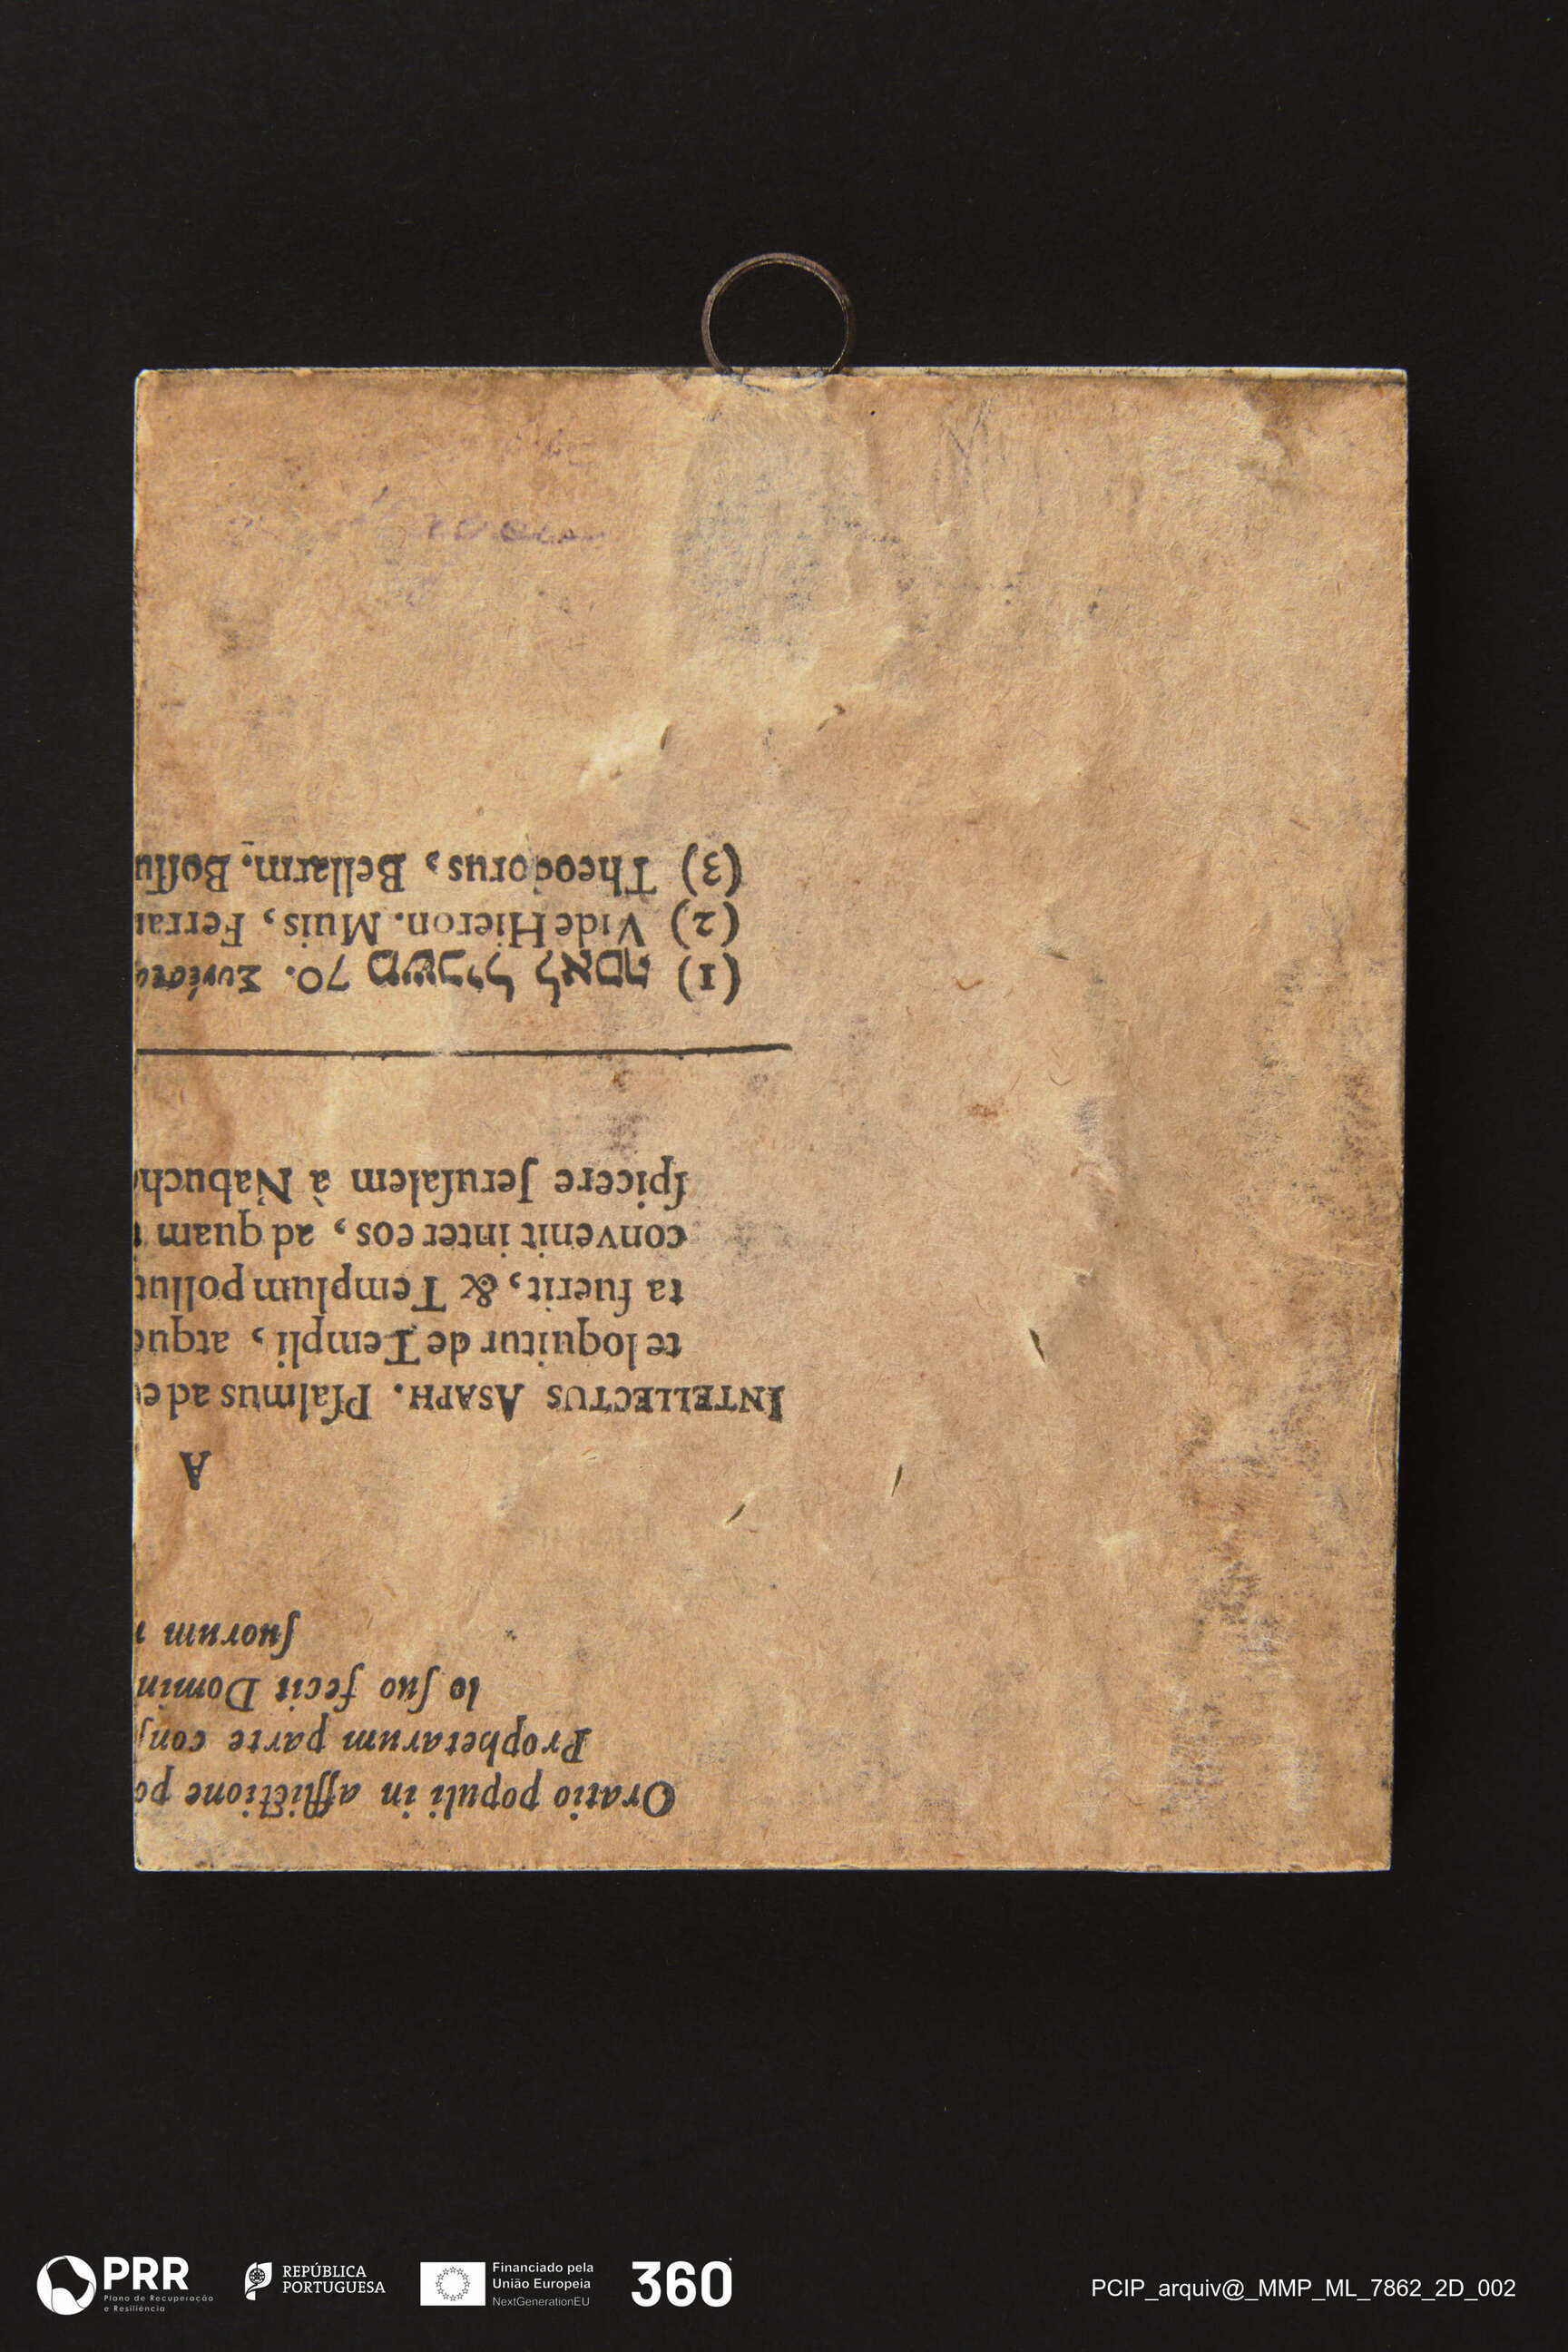 Oratio populi in afflictione po
Prophetarum parte conſ
lo ſuo fecit Domin
ſuorum
A
INTELLECTUS ASAPH. Pſalmus ad e
te loquitur de Templi, atque
ta fuerit, & Templum pollut
convenit inter eos, ad quam
ſpicere Jeruſalem à Nabuch
(1) משכיל לאסף 70. Συνέσε
(2) Vide Hieron. Muis, Ferrar
(3) Theodorus, Bellarm. Boſſu
PRR
Plano de Recuperação
e Resiliência
REPÚBLICA
PORTUGUESA
Financiado pela
União Europeia
NextGenerationEU
360°
PCIP_arquiv@_MMP_ML_7862_2D_002